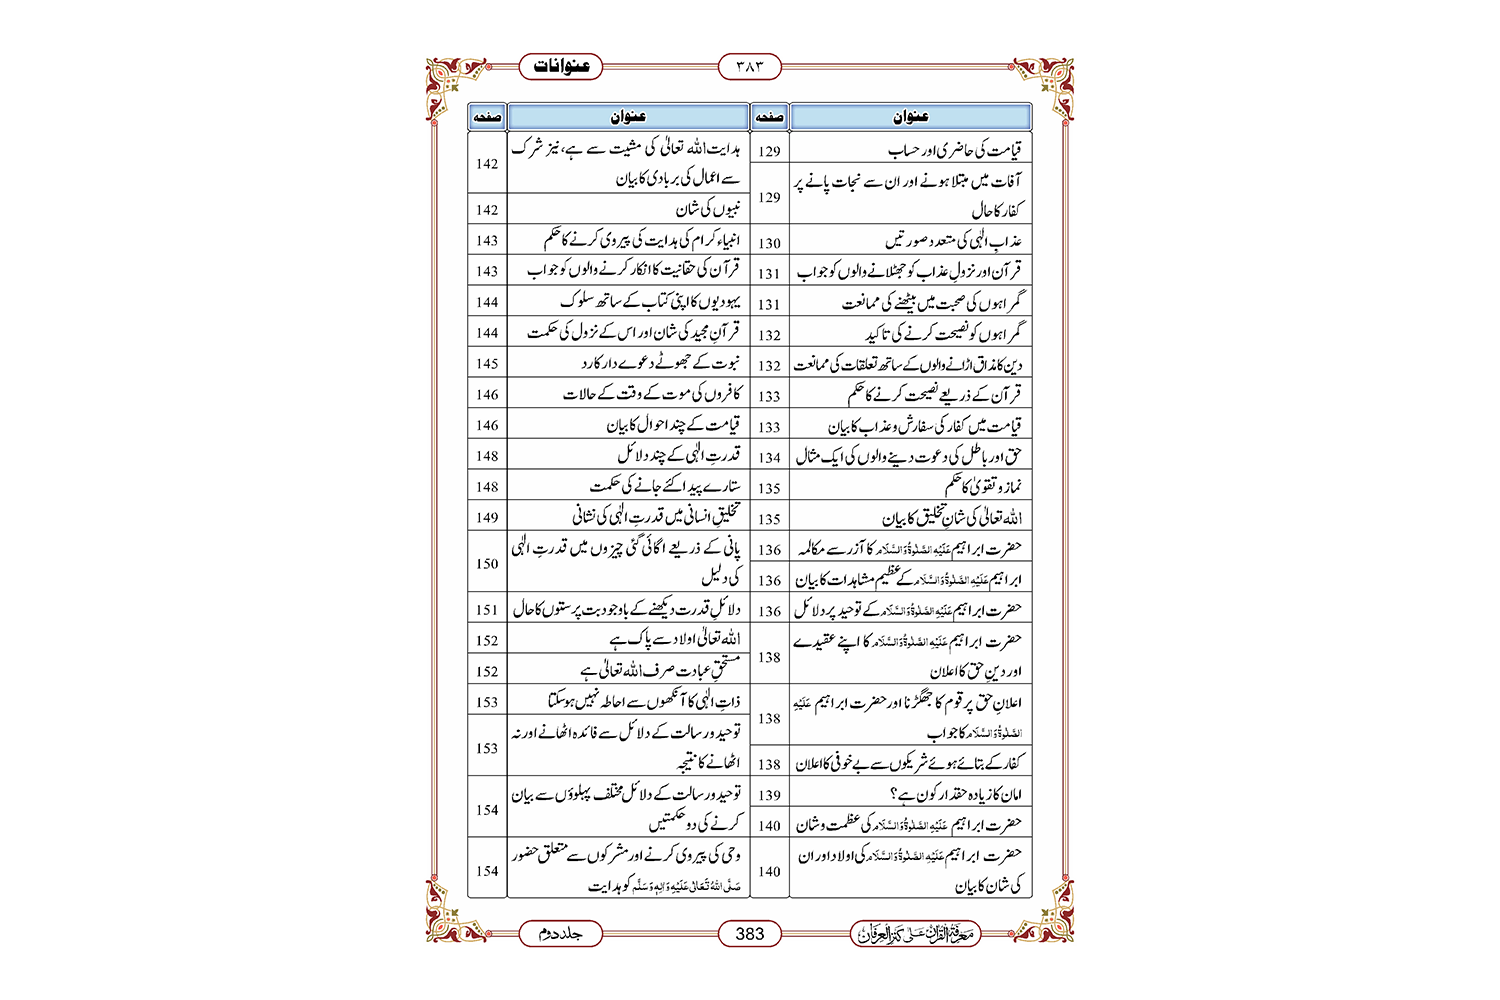 عنوانات
۳۸۳
عنوان
صفحہ
قیامت کی حاضری اور حساب
129
آفات میں مبتلا ہونے اور ان سے نجات پانے پر
کفار کا حال
129
عذابِ الٰہی کی متعدد صورتیں
130
قرآن اور نزولِ عذاب کو جھٹلانے والوں کو جواب
131
گمراہوں کی صحبت میں بیٹھنے کی ممانعت
131
گمراہوں کو نصیحت کرنے کی تاکید
132
دین کا مذاق اڑانے والوں کے ساتھ تعلقات کی ممانعت
132
قرآن کے ذریعے نصیحت کرنے کا حکم
133
قیامت میں کفار کی سفارش و عذاب کا بیان
133
حق اور باطل کی دعوت دینے والوں کی ایک مثال
134
نماز و تقویٰ کا حکم
135
اللہ تعالیٰ کی شانِ تخلیق کا بیان
135
حضرت ابراہیم عَلَیْہِ الصَّلٰوۃُ وَالسَّلَام کا آزر سے مکالمہ
136
ابراہیم عَلَیْہِ الصَّلٰوۃُ وَالسَّلَام کے عظیم مشاہدات کا بیان
136
حضرت ابراہیم عَلَیْہِ الصَّلٰوۃُ وَالسَّلَام کے توحید پر دلائل
136
حضرت ابراہیم عَلَیْہِ الصَّلٰوۃُ وَالسَّلَام کا اپنے عقیدے
اور دینِ حق کا اعلان
138
اعلانِ حق پر قوم کا جھگڑنا اور حضرت ابراہیم عَلَیْہِ
الصَّلٰوۃُ وَالسَّلَام کا جواب
138
کفار کے بتائے ہوئے شریکوں سے بے خوفی کا اعلان
138
امان کا زیادہ حقدار کون ہے؟
139
حضرت ابراہیم عَلَیْہِ الصَّلٰوۃُ وَالسَّلَام کی عظمت و شان
140
حضرت ابراہیم عَلَیْہِ الصَّلٰوۃُ وَالسَّلَام کی اولاد اور ان
کی شان کا بیان
140
عنوان
صفحہ
ہدایت اللہ تعالیٰ کی مشیت سے ہے، نیز شرک
سے اعمال کی بربادی کا بیان
142
نبیوں کی شان
142
انبیاء کرام کی ہدایت کی پیروی کرنے کا حکم
143
قرآن کی حقانیت کا انکار کرنے والوں کو جواب
143
یہودیوں کا اپنی کتاب کے ساتھ سلوک
144
قرآنِ مجید کی شان اور اس کے نزول کی حکمت
144
نبوت کے جھوٹے دعوے دار کا رد
145
کافروں کی موت کے وقت کے حالات
146
قیامت کے چند احوال کا بیان
146
قدرتِ الٰہی کے چند دلائل
148
ستارے پیدا کئے جانے کی حکمت
148
تخلیقِ انسانی میں قدرتِ الٰہی کی نشانی
149
پانی کے ذریعے اگائی گئی چیزوں میں قدرتِ الٰہی
کی دلیل
150
دلائلِ قدرت دیکھنے کے باوجود بت پرستوں کا حال
151
اللہ تعالیٰ اولاد سے پاک ہے
152
مستحقِ عبادت صرف اللہ تعالیٰ ہے
152
ذاتِ الٰہی کا آنکھوں سے احاطہ نہیں ہوسکتا
153
توحید و رسالت کے دلائل سے فائدہ اٹھانے اور نہ
اٹھانے کا نتیجہ
153
توحید و رسالت کے دلائل مختلف پہلوؤں سے بیان
کرنے کی دو حکمتیں
154
وحی کی پیروی کرنے اور مشرکوں سے متعلق حضور
صَلَّی اللہُ تَعَالٰی عَلَیْہِ وَاٰلِہٖ وَسَلَّم کو ہدایت
154
معرفۃ القرآن علٰی کنز العرفان
383
جلد دوم